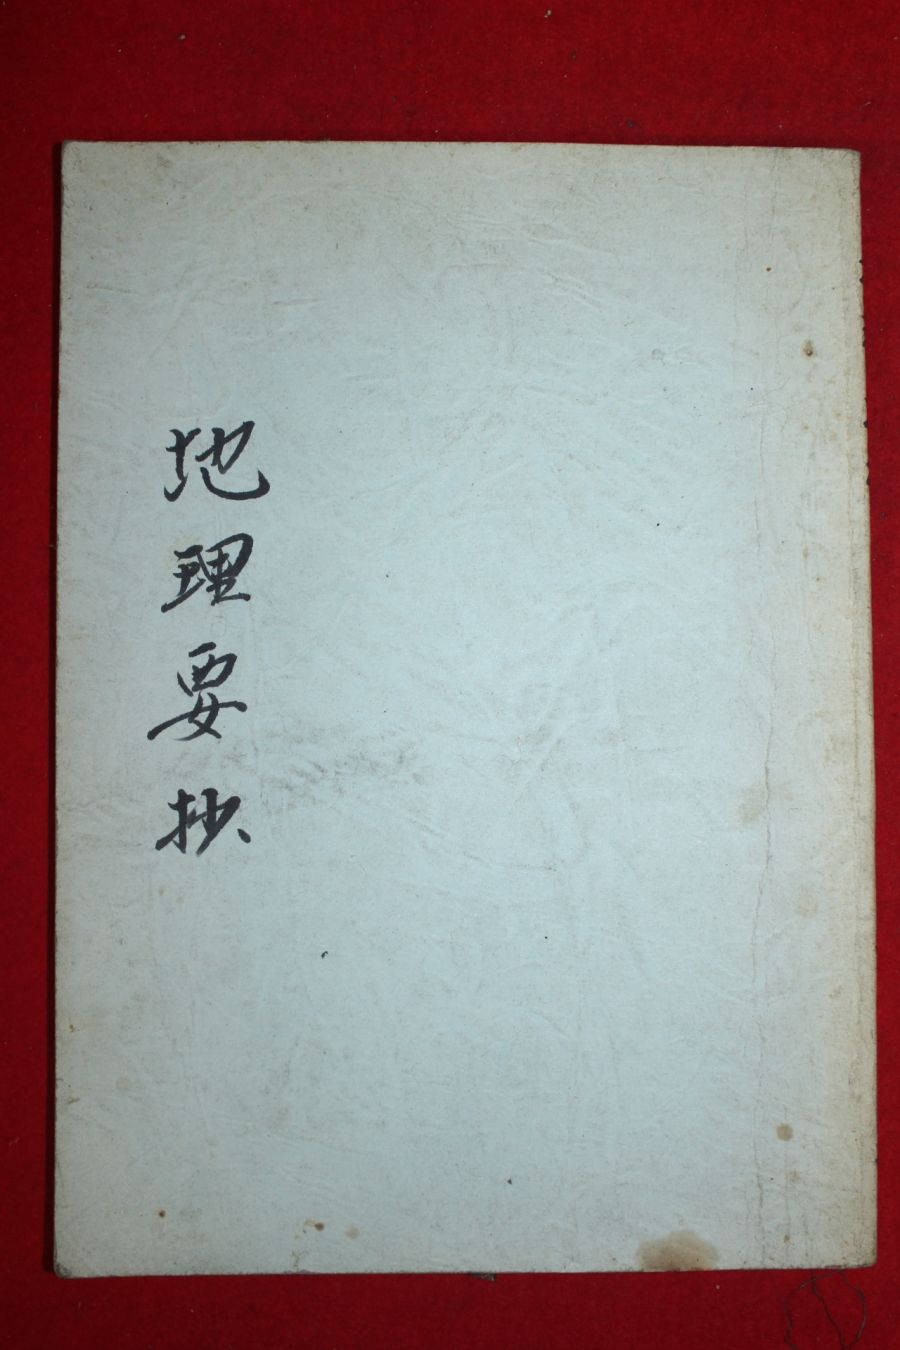 地理要抄